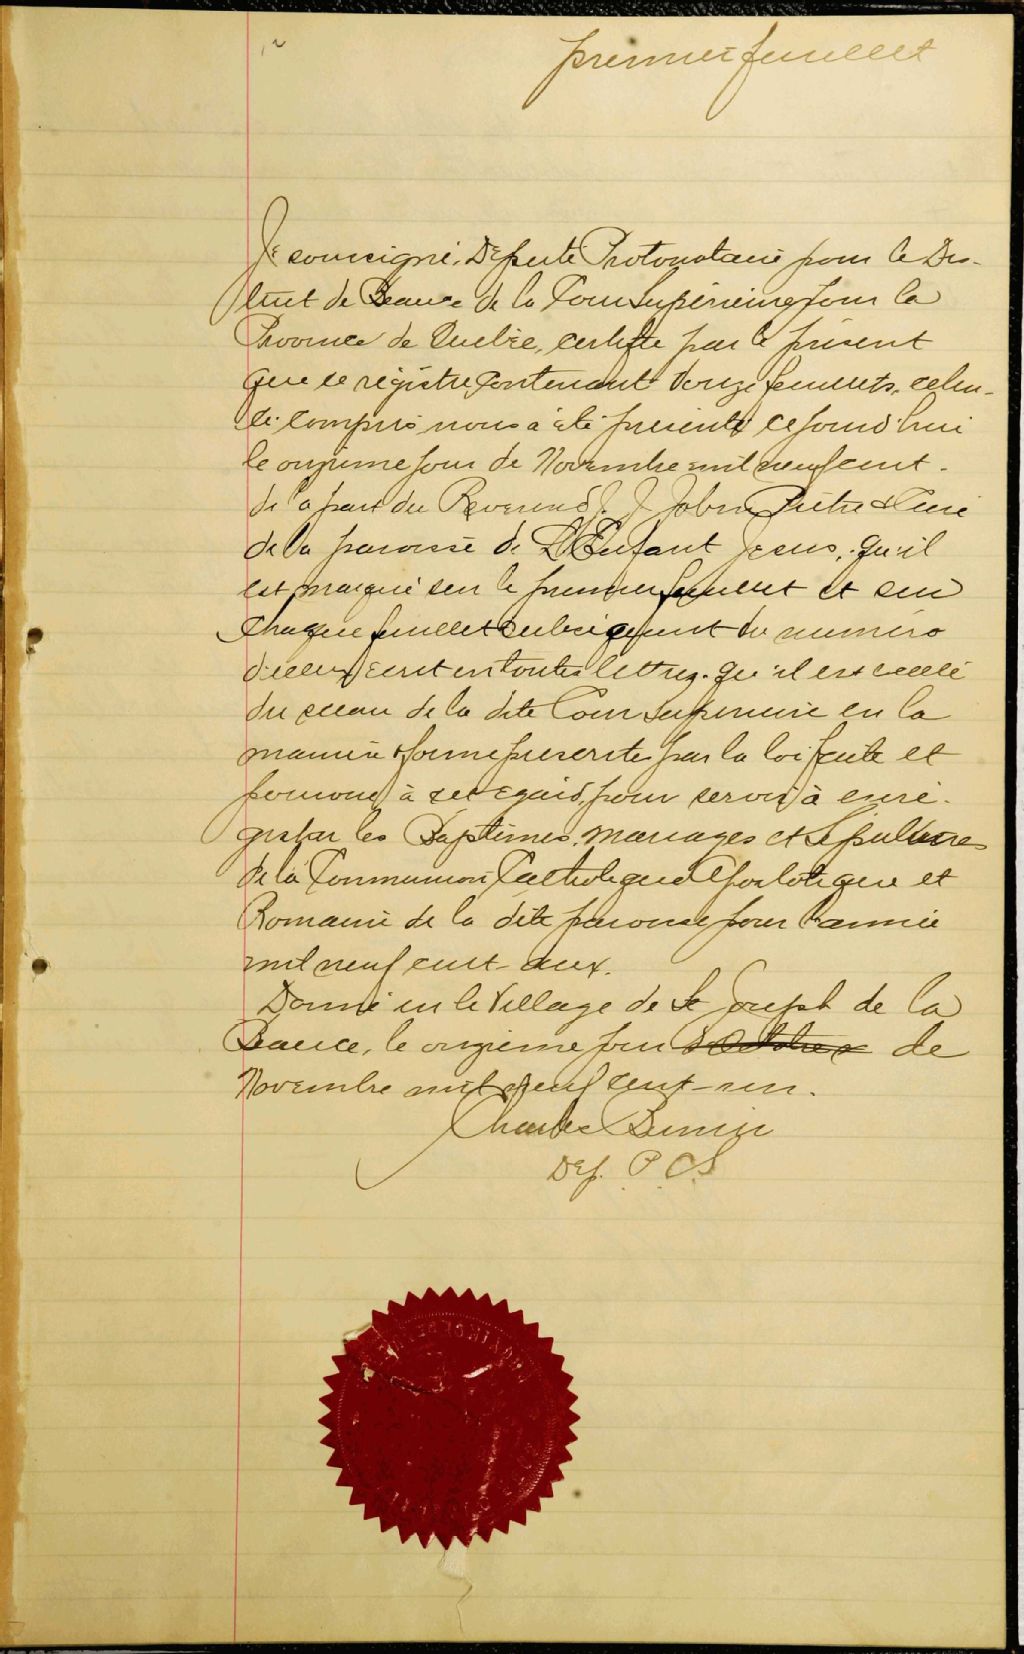 premier feuillet
Je soussigné, Députe Protonotaire pour le Dis-
trict de Beauce de la Cour Supérieure pour la
Province de Québec, certifie par le présent
que ce régistre contenant feuillets, celui-
ci compris nous a été présenté ce jourd'hui
le onzième jour de Novembre mil neuf cent
de la part du Reverend J. Jobin Prêtre & Curé
de la paroisse de L'Enfant Jesus, qu'il
est marqué sur le premier feuillet et sur
chaque feuillet subséquent du numéro
d'iceux écrit en toutes lettres, qu'il est scellé
du sceau de la dite Cour Supérieure en la
manière & forme prescrite par la loi faite et
pourvue à cet egard, pour servir à enré-
gistrer les Baptêmes, Mariages et Sépultures
de la Communion Catholique Apostolique et
Romaine de la dite paroisse pour l'année
mil neuf cent-deux.
Donné en le Village de St Joseph de la
Beauce, le onzième jour d'Octobre de
Novembre mil neuf cent-un.
Charles
Dep. P. C. S.